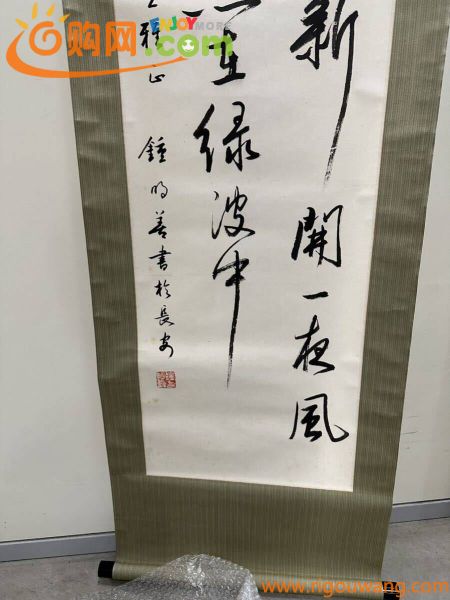 e购网.com
ENJOY MORE
新開一夜風
在綠波中
雅正
鍾明善書於長安
www.rigouwang.com